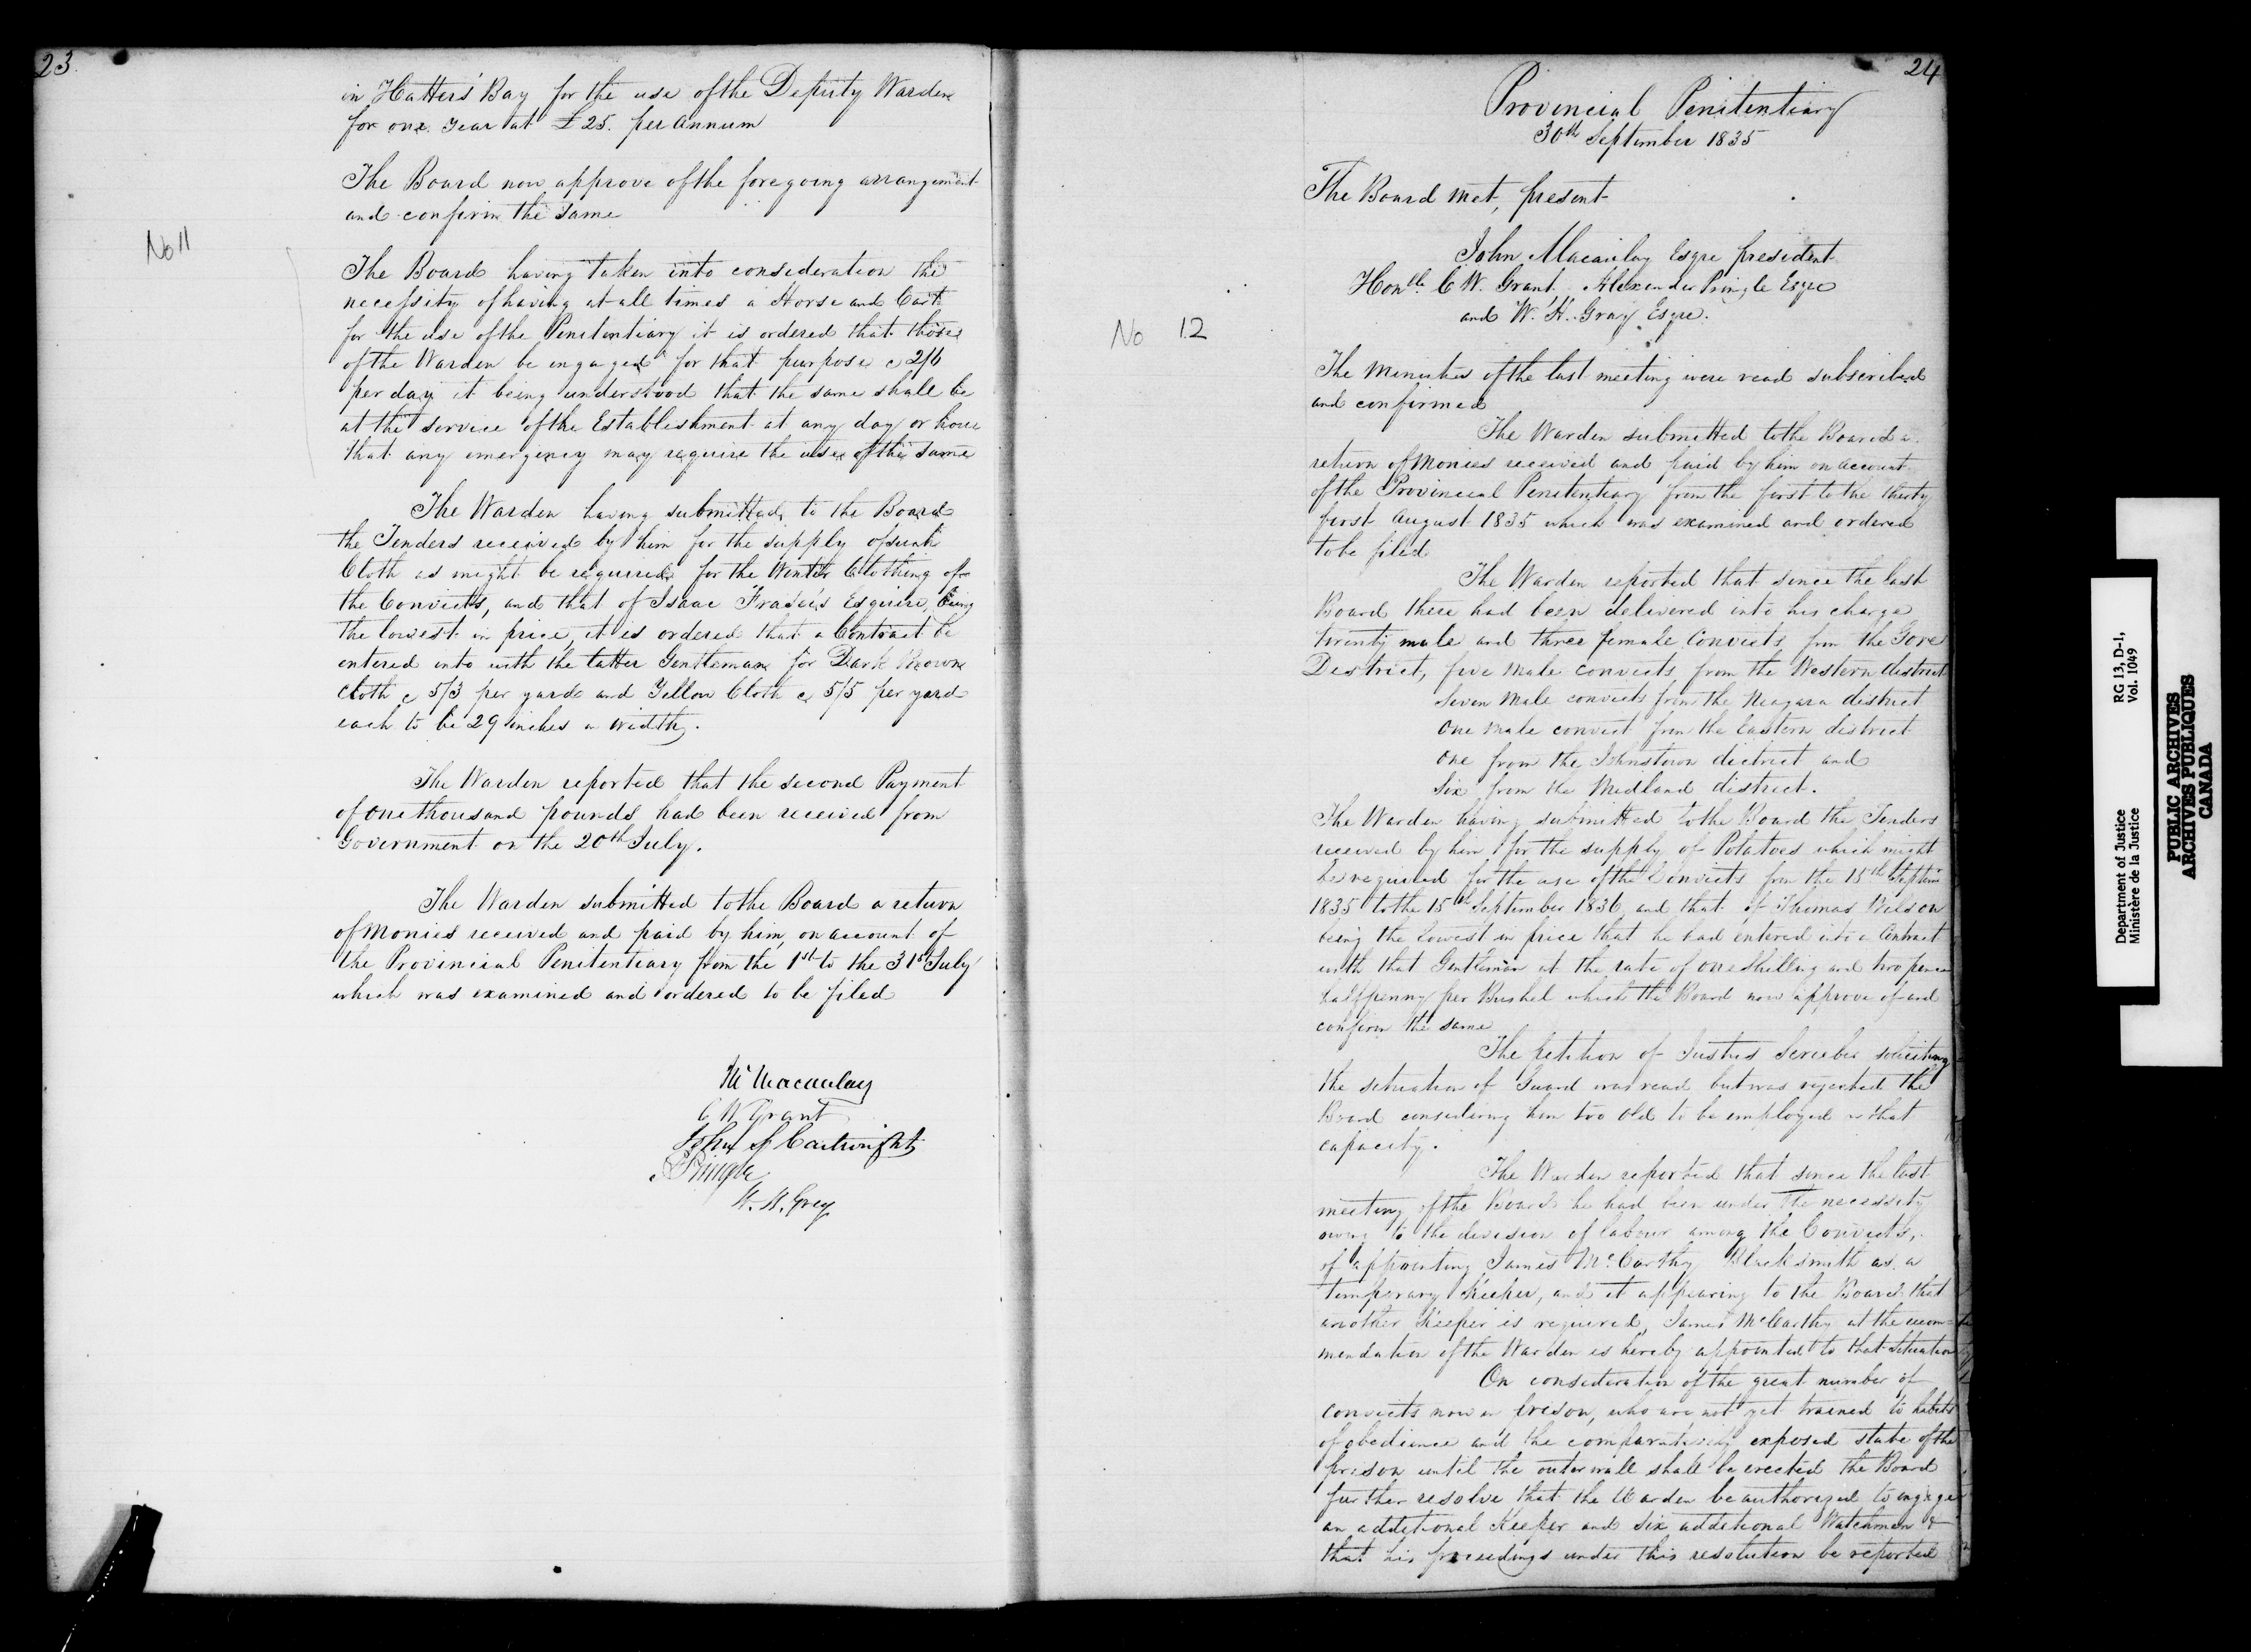 23.
in Hatters' Bay for the use of the Deputy Warden
for one year at £25. per annum
The Board now approve of the foregoing arrangement
and confirm the same
No 11
The Board having taken into consideration the
necessity of having at all times a Horse and Cart
for the use of the Penitentiary it is ordered that those
of the Warden be engaged for that purpose @ 2/6
per day it being understood that the same shall be
at the service of the Establishment at any day or hour
that any emergency may require the use of the same
The Warden having submitted to the Board
the Tenders received by him for the supply of such
Cloth as might be required for the Winter Clothing of
the Convicts, and that of Isaac Fraser's Esquire, being
the lowest in price, it is ordered that a Contract be
entered into with the latter Gentleman for Dark Brown
Cloth @ 5/3 per yard and Yellow Cloth @ 5/5 per yard
each to be 29 inches in width.
The Warden reported that the second Payment
of one thousand pounds had been received from
Government on the 20th July.
The Warden submitted to the Board a return
of Monies received and paid by him, on account of
the Provincial Penitentiary from the 1st to the 31st July
which was examined and ordered to be filed
Macaulay
C W Grant
John S Cartwright
A Pringle
W. H. Gray
24
Provincial Penitentiary
30th September 1835
The Board met, present
John Macaulay Esqre president
Honble C. W. Grant Alexander Pringle Esqre
and W. H. Gray Esqre.
No 12
The Minutes of the last meeting were read subscribed
and confirmed
The Warden submitted to the Board a
return of Monies received and paid by him on account
of the Provincial Penitentiary from the first to the thirty
first August 1835 which was examined and ordered
to be filed
The Warden reported that since the last
Board there had been delivered into his charge
twenty male and three female Convicts from the Gore
District, five male convicts from the Western district
Seven Male convicts from the Niagara district
One Male convict from the Eastern district
One from the Johnstown district and
Six from the Midland district.
The Warden having submitted to the Board the Tenders
received by him for the supply of Potatoes which might
be required for the use of the Convicts from the 15th Septem
1835 to the 15th September 1836 and that of Thomas Wilson
being the lowest in price that he had entered into a Contract
with that Gentleman at the rate of one shilling and two pence
halfpenny per Bushel which the Board now approve of and
confirm the same
The petition of Justus Scriber soliciting
the situation of Guard was read but was rejected the
Board considering him too old to be employed in that
capacity.
The Warden reported that since the last
meeting of the Board he had been under the necessity
owing to the division of labour among the Convicts,
of appointing James McCarthy Blacksmith as a
temporary Keeper, and it appearing to the Board that
another Keeper is required, James McCarthy at the recom-
mendation of the Warden is hereby appointed to that Situation
On consideration of the great number of
convicts now in prison, who are not yet trained to habits
of obedience and the comparatively exposed state of the
prison until the outer wall shall be erected the Board
further resolve that the Warden be authorized to engage
an additional Keeper and six additional Watchmen &
that his proceedings under this resolution be reported
Department of Justice RG 13, D-1,
Ministère de la Justice Vol. 1049
PUBLIC ARCHIVES
ARCHIVES PUBLIQUES
CANADA